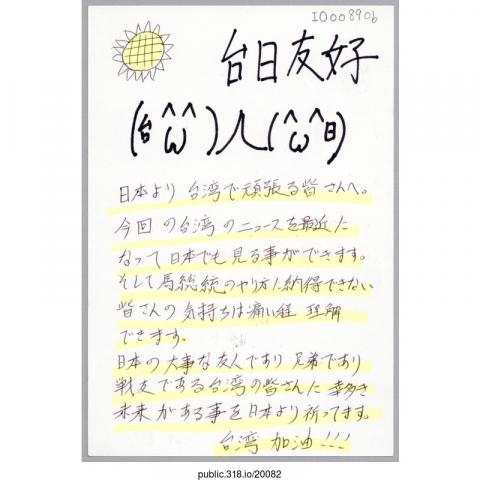 IO008906
台日友好
(台^ω^)人(^ω^日)
日本より 台湾で頑張る皆さんへ。
今回の台湾のニュースを最近に
なって日本でも見る事ができます。
そして馬総統のやり方に納得できない
皆さんの気持ちは痛い程 理解
できます。
日本の大事な友人であり 兄弟であり
戦友である台湾の皆さんに 幸多き
未来がある事を日本より祈ってます。
台湾 加油!!!
public.318.io/20082